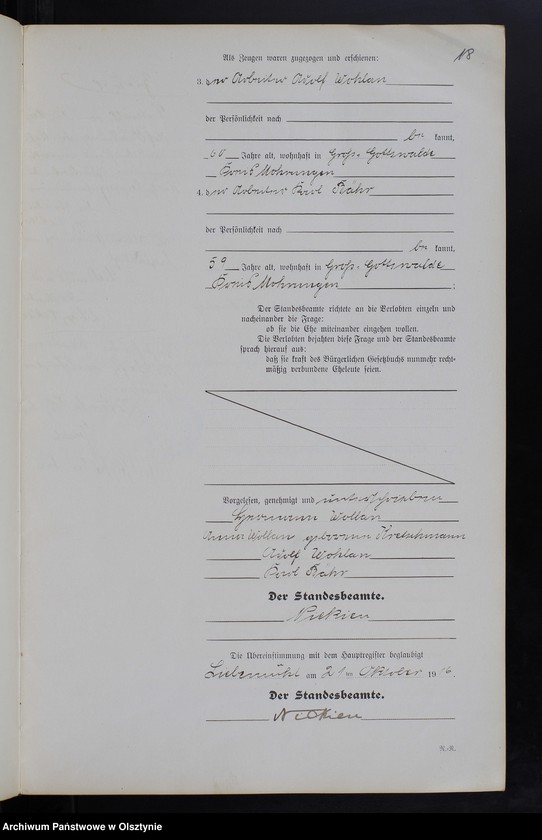 18
Als Zeugen waren zugezogen und erschienen:
3. der Arbeiter Adolf Wohlan
der Persönlichkeit nach
be kannt,
60 Jahre alt, wohnhaft in Groß-Gottswalde
Kreis Mohrungen
4. der Arbeiter Karl Bähr
der Persönlichkeit nach
be kannt,
50 Jahre alt, wohnhaft in Groß-Gottswalde
Kreis Mohrungen ;
Der Standesbeamte richtete an die Verlobten einzeln und
nacheinander die Frage:
ob sie die Ehe miteinander eingehen wollen.
Die Verlobten bejahten diese Frage und der Standesbeamte
sprach hierauf aus:
daß sie kraft des Bürgerlichen Gesetzbuchs nunmehr recht-
mäßig verbundene Eheleute seien.
Vorgelesen, genehmigt und unterschrieben
Hermann Wollan
Wollan geborene Kretschmann
Adolf Wohlan
Karl Bähr
Der Standesbeamte.
Die Übereinstimmung mit dem Hauptregister beglaubigt
Liebemühl am 21ten Oktober 1916.
Der Standesbeamte.
R.-R.
Archiwum Państwowe w Olsztynie